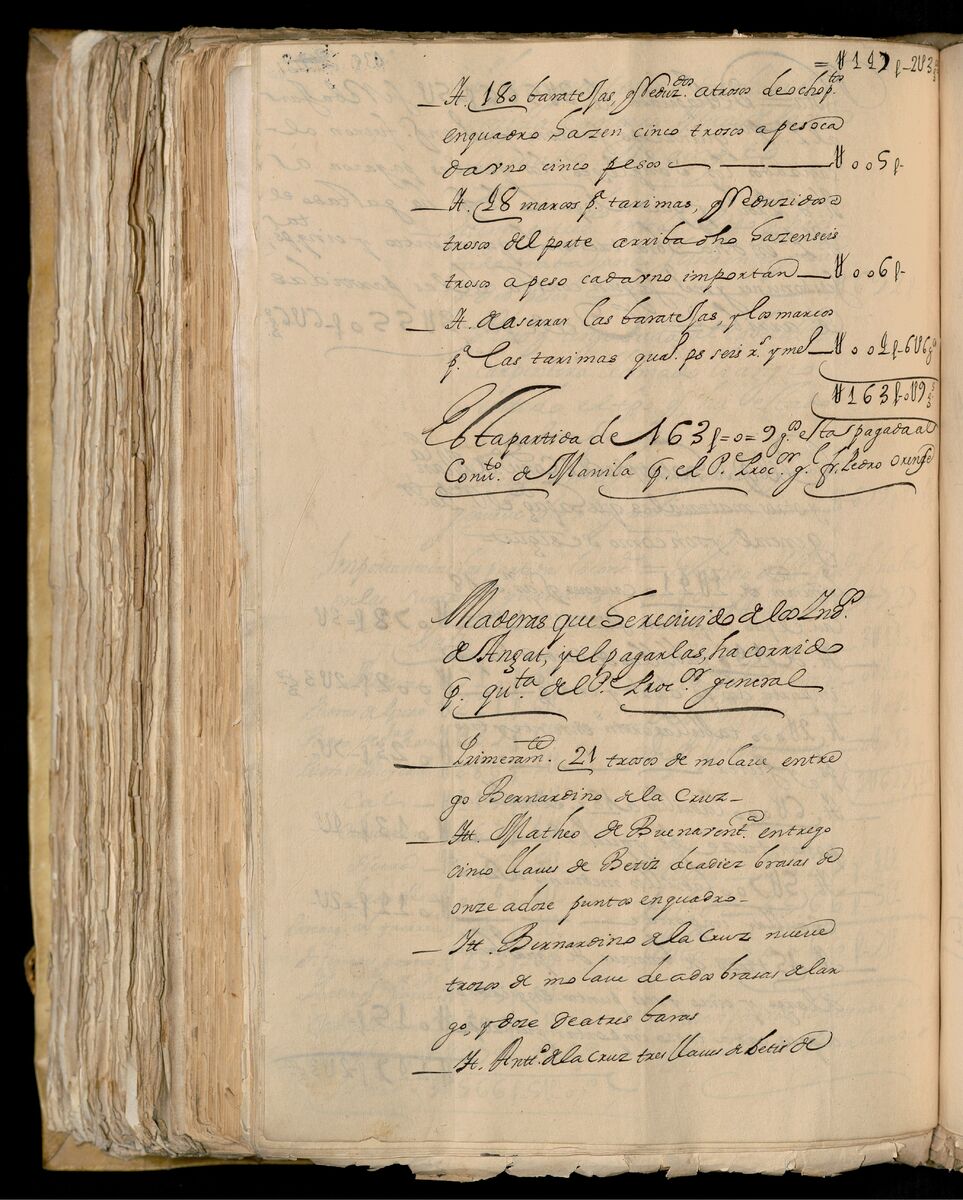 = U 147 p-2U3
It. 180 baratejas, q Reduzdos. a trosos de ocho ptos.
en quadro hazen cinco trosos a peso ca
da vno cinco pesos — U 005 p-
It. 28 marcos pa. tarimas, q Reduzidos a
trosos del porte arriba dho hazen seis
trosos a peso cada vno importan — U 006 p-
It. de aserrar las baratejas, y los marcos
pa. las tarimas qual. ps seis rs. y mel — U 004 p-6U6 gs
U 163 p 0U9
Esta partida de 163 p=0=9 gs. esta pagada al
Conuto. de Manila q. el Pe. Procor. gl. fr. Pedro Orense
Maderas que he reciuido de los Yndos.
de Angat, y el pagarlas, ha corrido
q. quta. del Pe. Procor. general
Primeramte. 21 trosos de molaue entre
go Bernardino de la Cruz —
Itt. Matheo de Buenauenta. entrego
cinco llaues de Betiz de a diez brasas de
onze a doze puntos en quadro —
Itt. Bernardino de la Cruz nueue
trozos de molaue de a dos brasas de lar
go, y doze de a tres baras
It. Antto. de la Cruz tres llaues de betis de